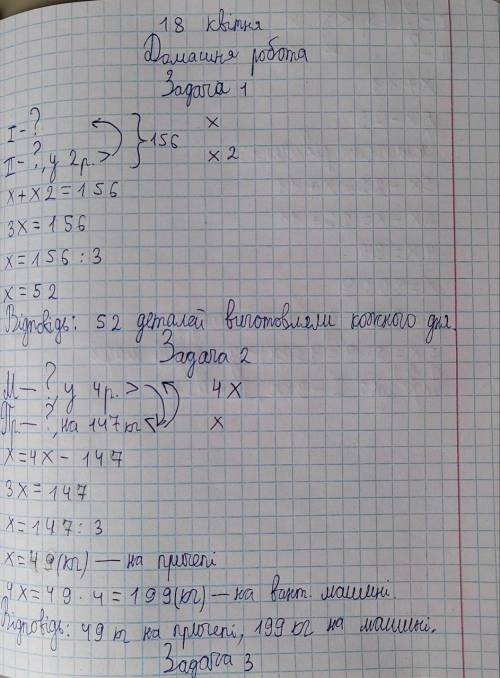 18 квітня
Домашня робота
Задача 1
І - ? } 156 x
ІІ - ?, у 2 р. > x 2
x + x 2 = 156
3x = 156
x = 156 : 3
x = 52
Відповідь: 52 деталей виготовляли кожного дня.
Задача 2
М — ?, у 4 р. > 4 x
Пр — ?, на 147 кг < x
x = 4x - 147
3x = 147
x = 147 : 3
x = 49 (кг) — на причепі
4x = 49 · 4 = 199 (кг) — на вант. машині.
Відповідь: 49 кг на причепі, 199 кг на машині.
Задача 3